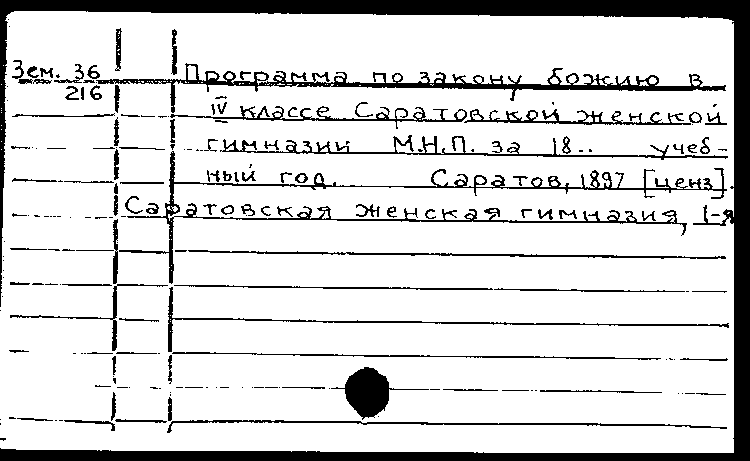 Зем. 36 Программа по закону божию в
216
IV классе Саратовской женской
гимназии М.Н.П. за 18.. учеб-
ный год. Саратов, 1897 [ценз].
Саратовская женская гимназия, 1-я